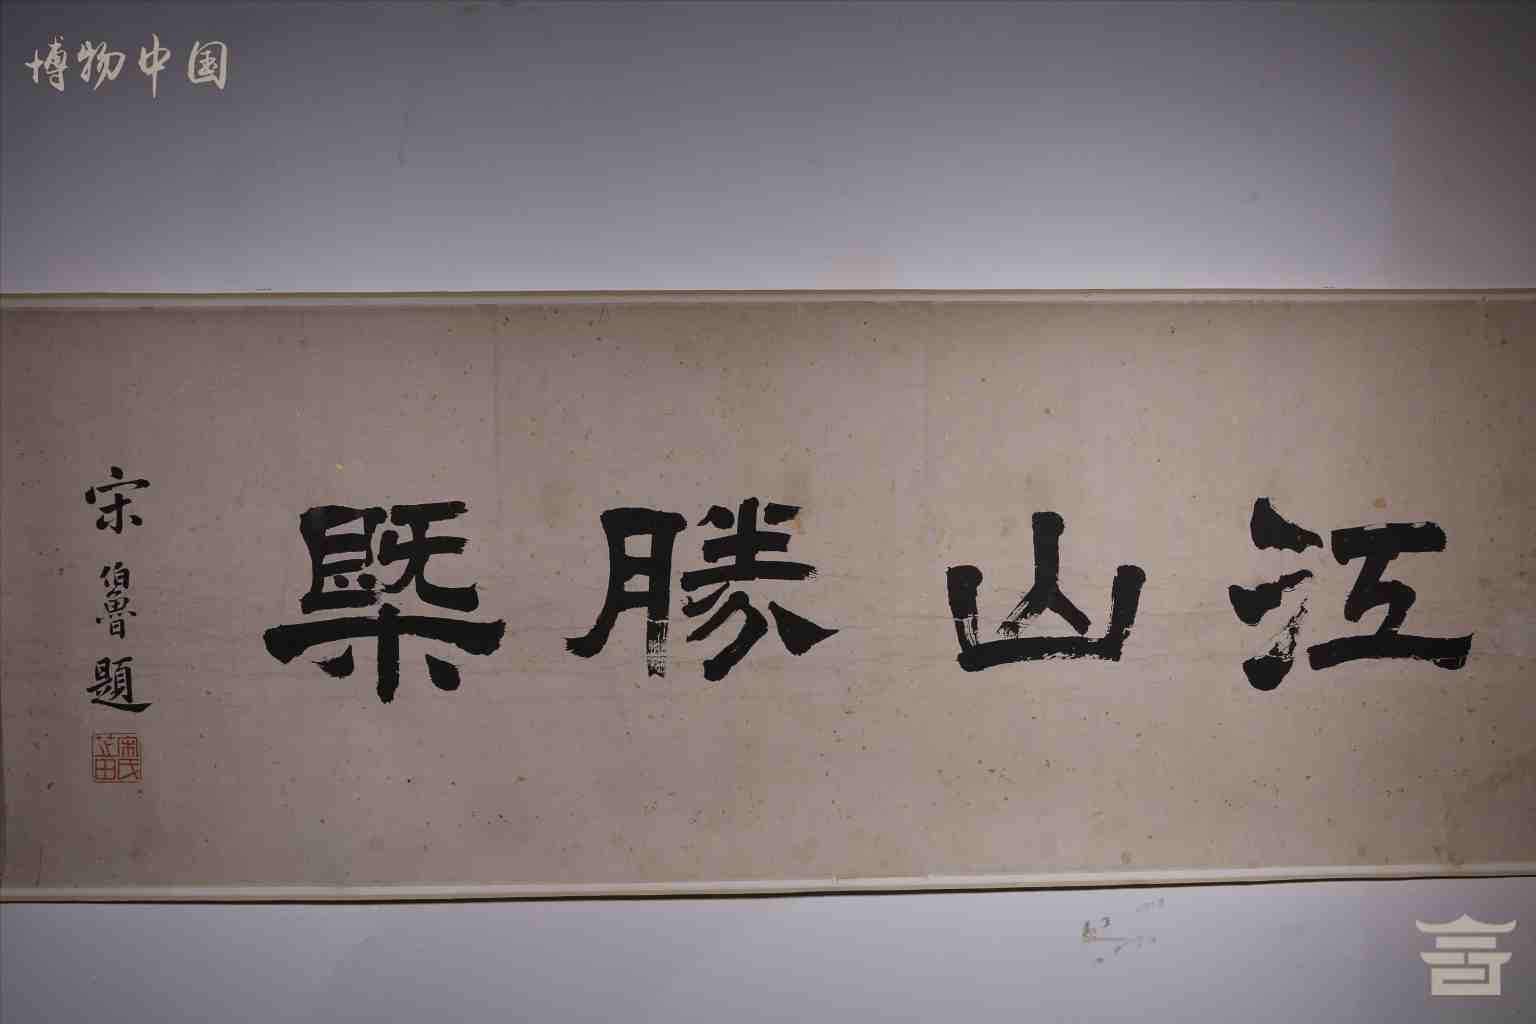 博物中国
江山勝槩
宋伯魯題
宋氏芝田